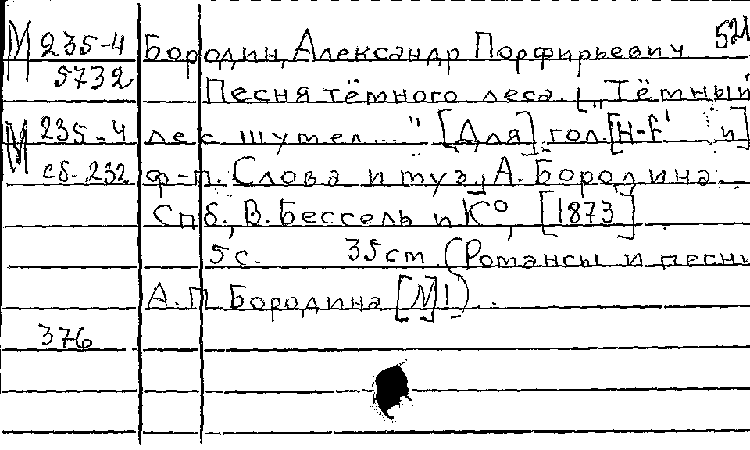 М 235-4 Бородин, Александр Порфирьевич 521
5732 Песня тёмного леса. [„Тёмный
М 235-4 лес шумел..." [Для] гол. [H-f' и]
сб-232 ф-п. Слова и муз. А. Бородина.
Спб., В. Бессель и К⁰, [1873]
5 с. 35 cm (Романсы и песни
А. П. Бородина [№1)..
376